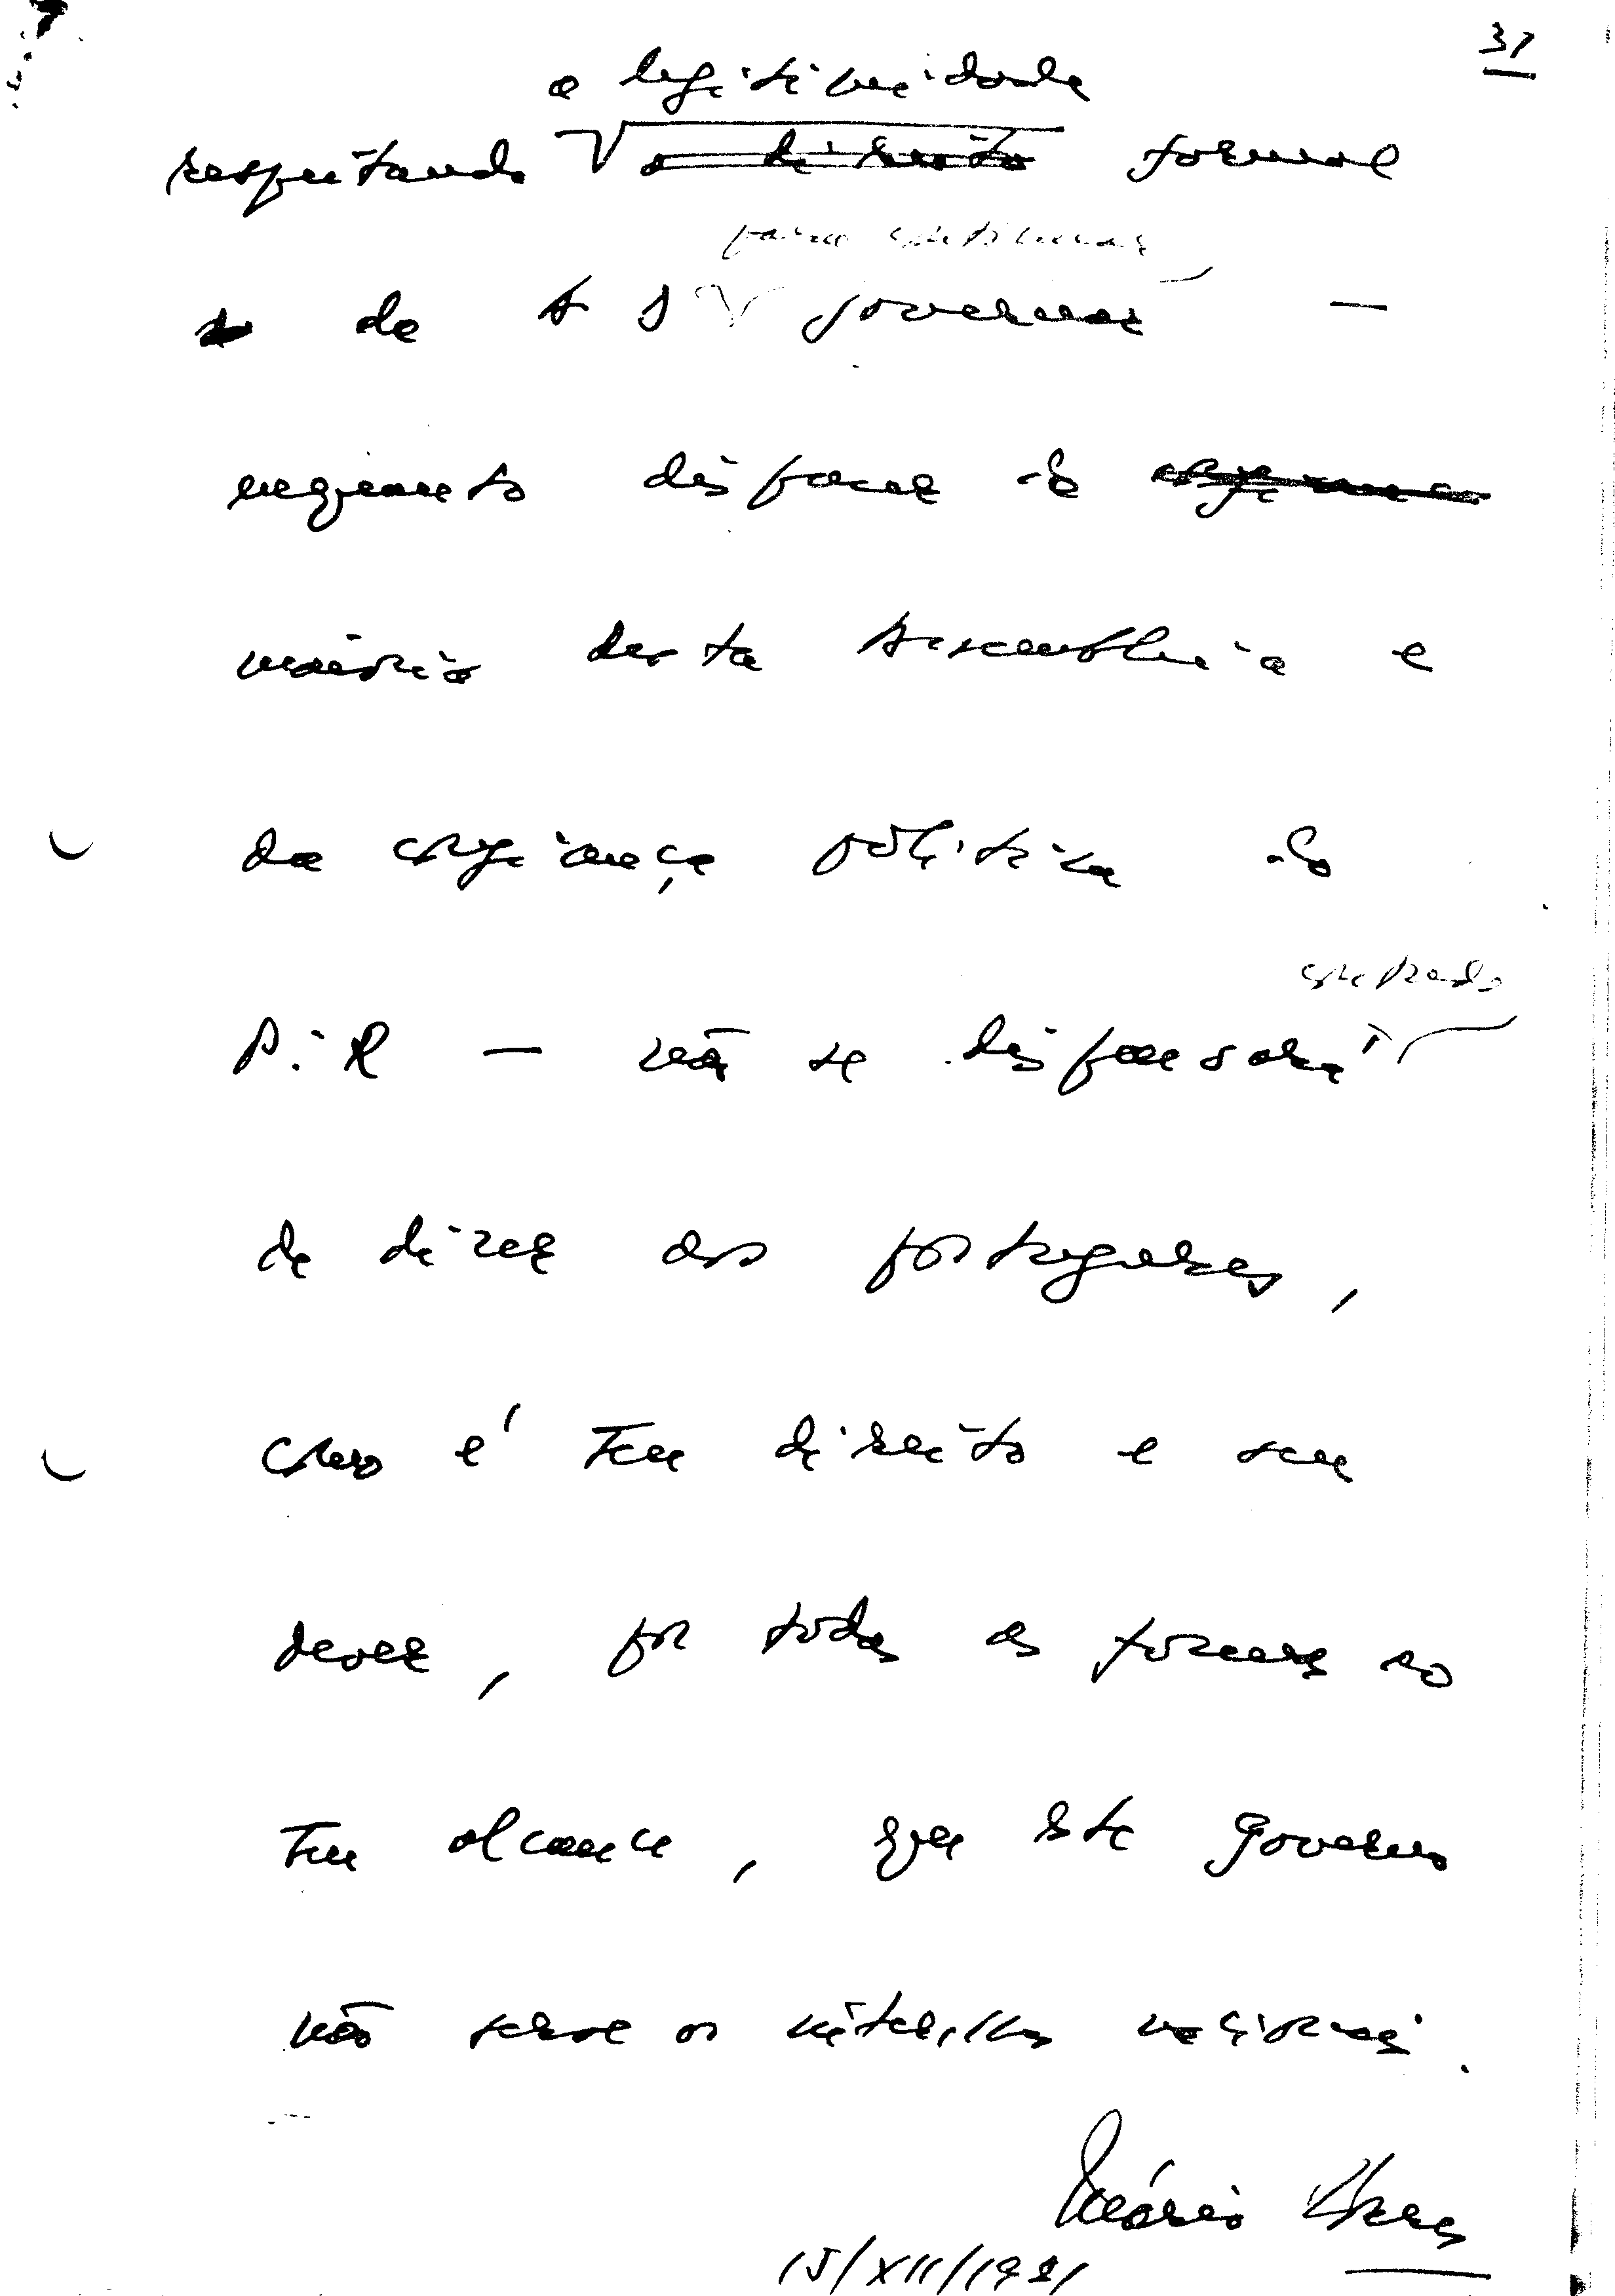 31
a legitimidade
respeitando o direito formal
para continuar
da AD governar —
enquanto dispuser da confiança
maioria desta Assembleia e
da confiança política do
P.R — não se dispensará
contudo
de dizer aos portugueses,
como é seu direito e seu
dever, por todas as formas ao
seu alcance, que este Governo
não serve os interesses nacionais.
Mário Soares
15/XII/1981